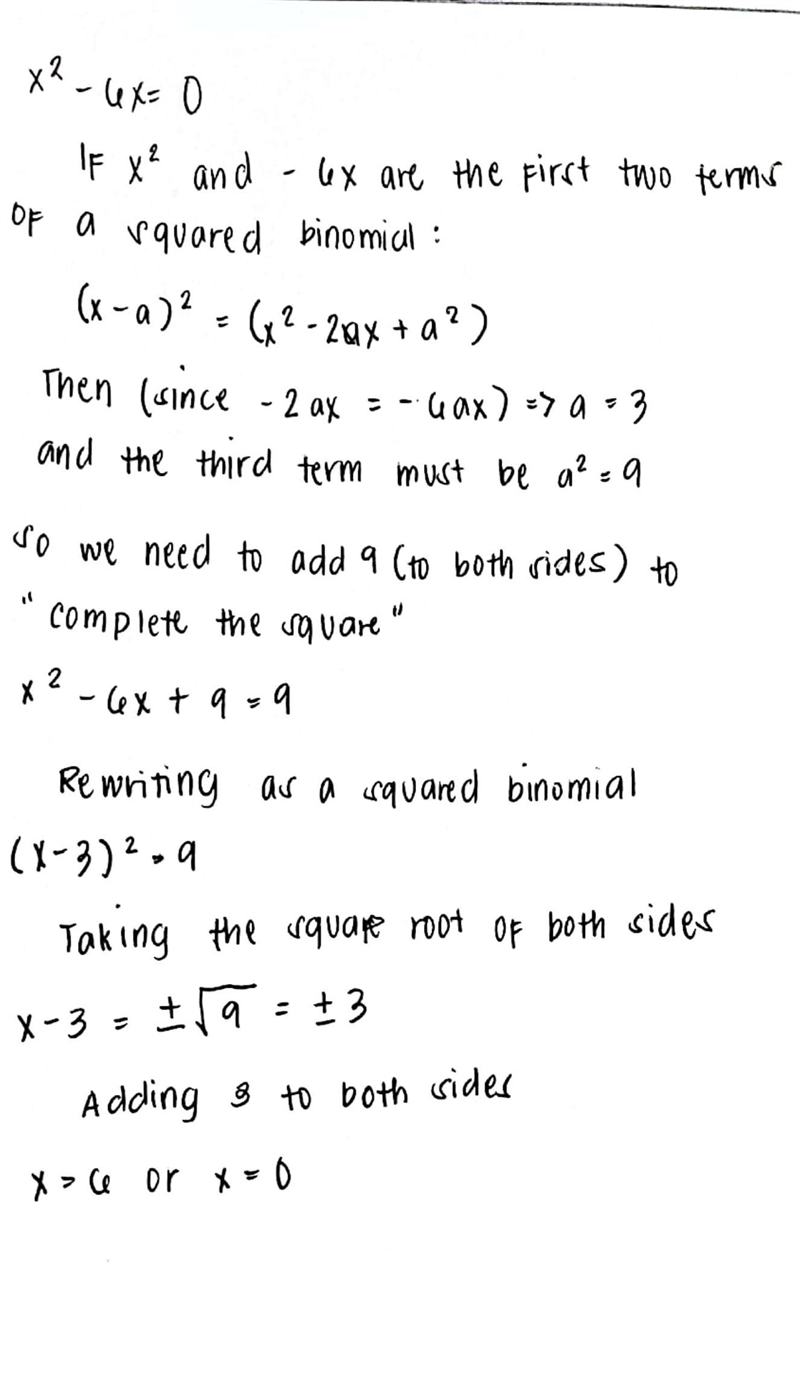 x² - 6x = 0
If x² and - 6x are the first two terms
of a squared binomial :
(x - a)² = (x² - 2ax + a²)
Then (since - 2ax = - 6ax) => a = 3
and the third term must be a² = 9
so we need to add 9 (to both sides) to
"complete the square"
x² - 6x + 9 = 9
Rewriting as a squared binomial
(x - 3)² = 9
Taking the square root of both sides
x - 3 = ±√9 = ±3
Adding 3 to both sides
x = 6 or x = 0